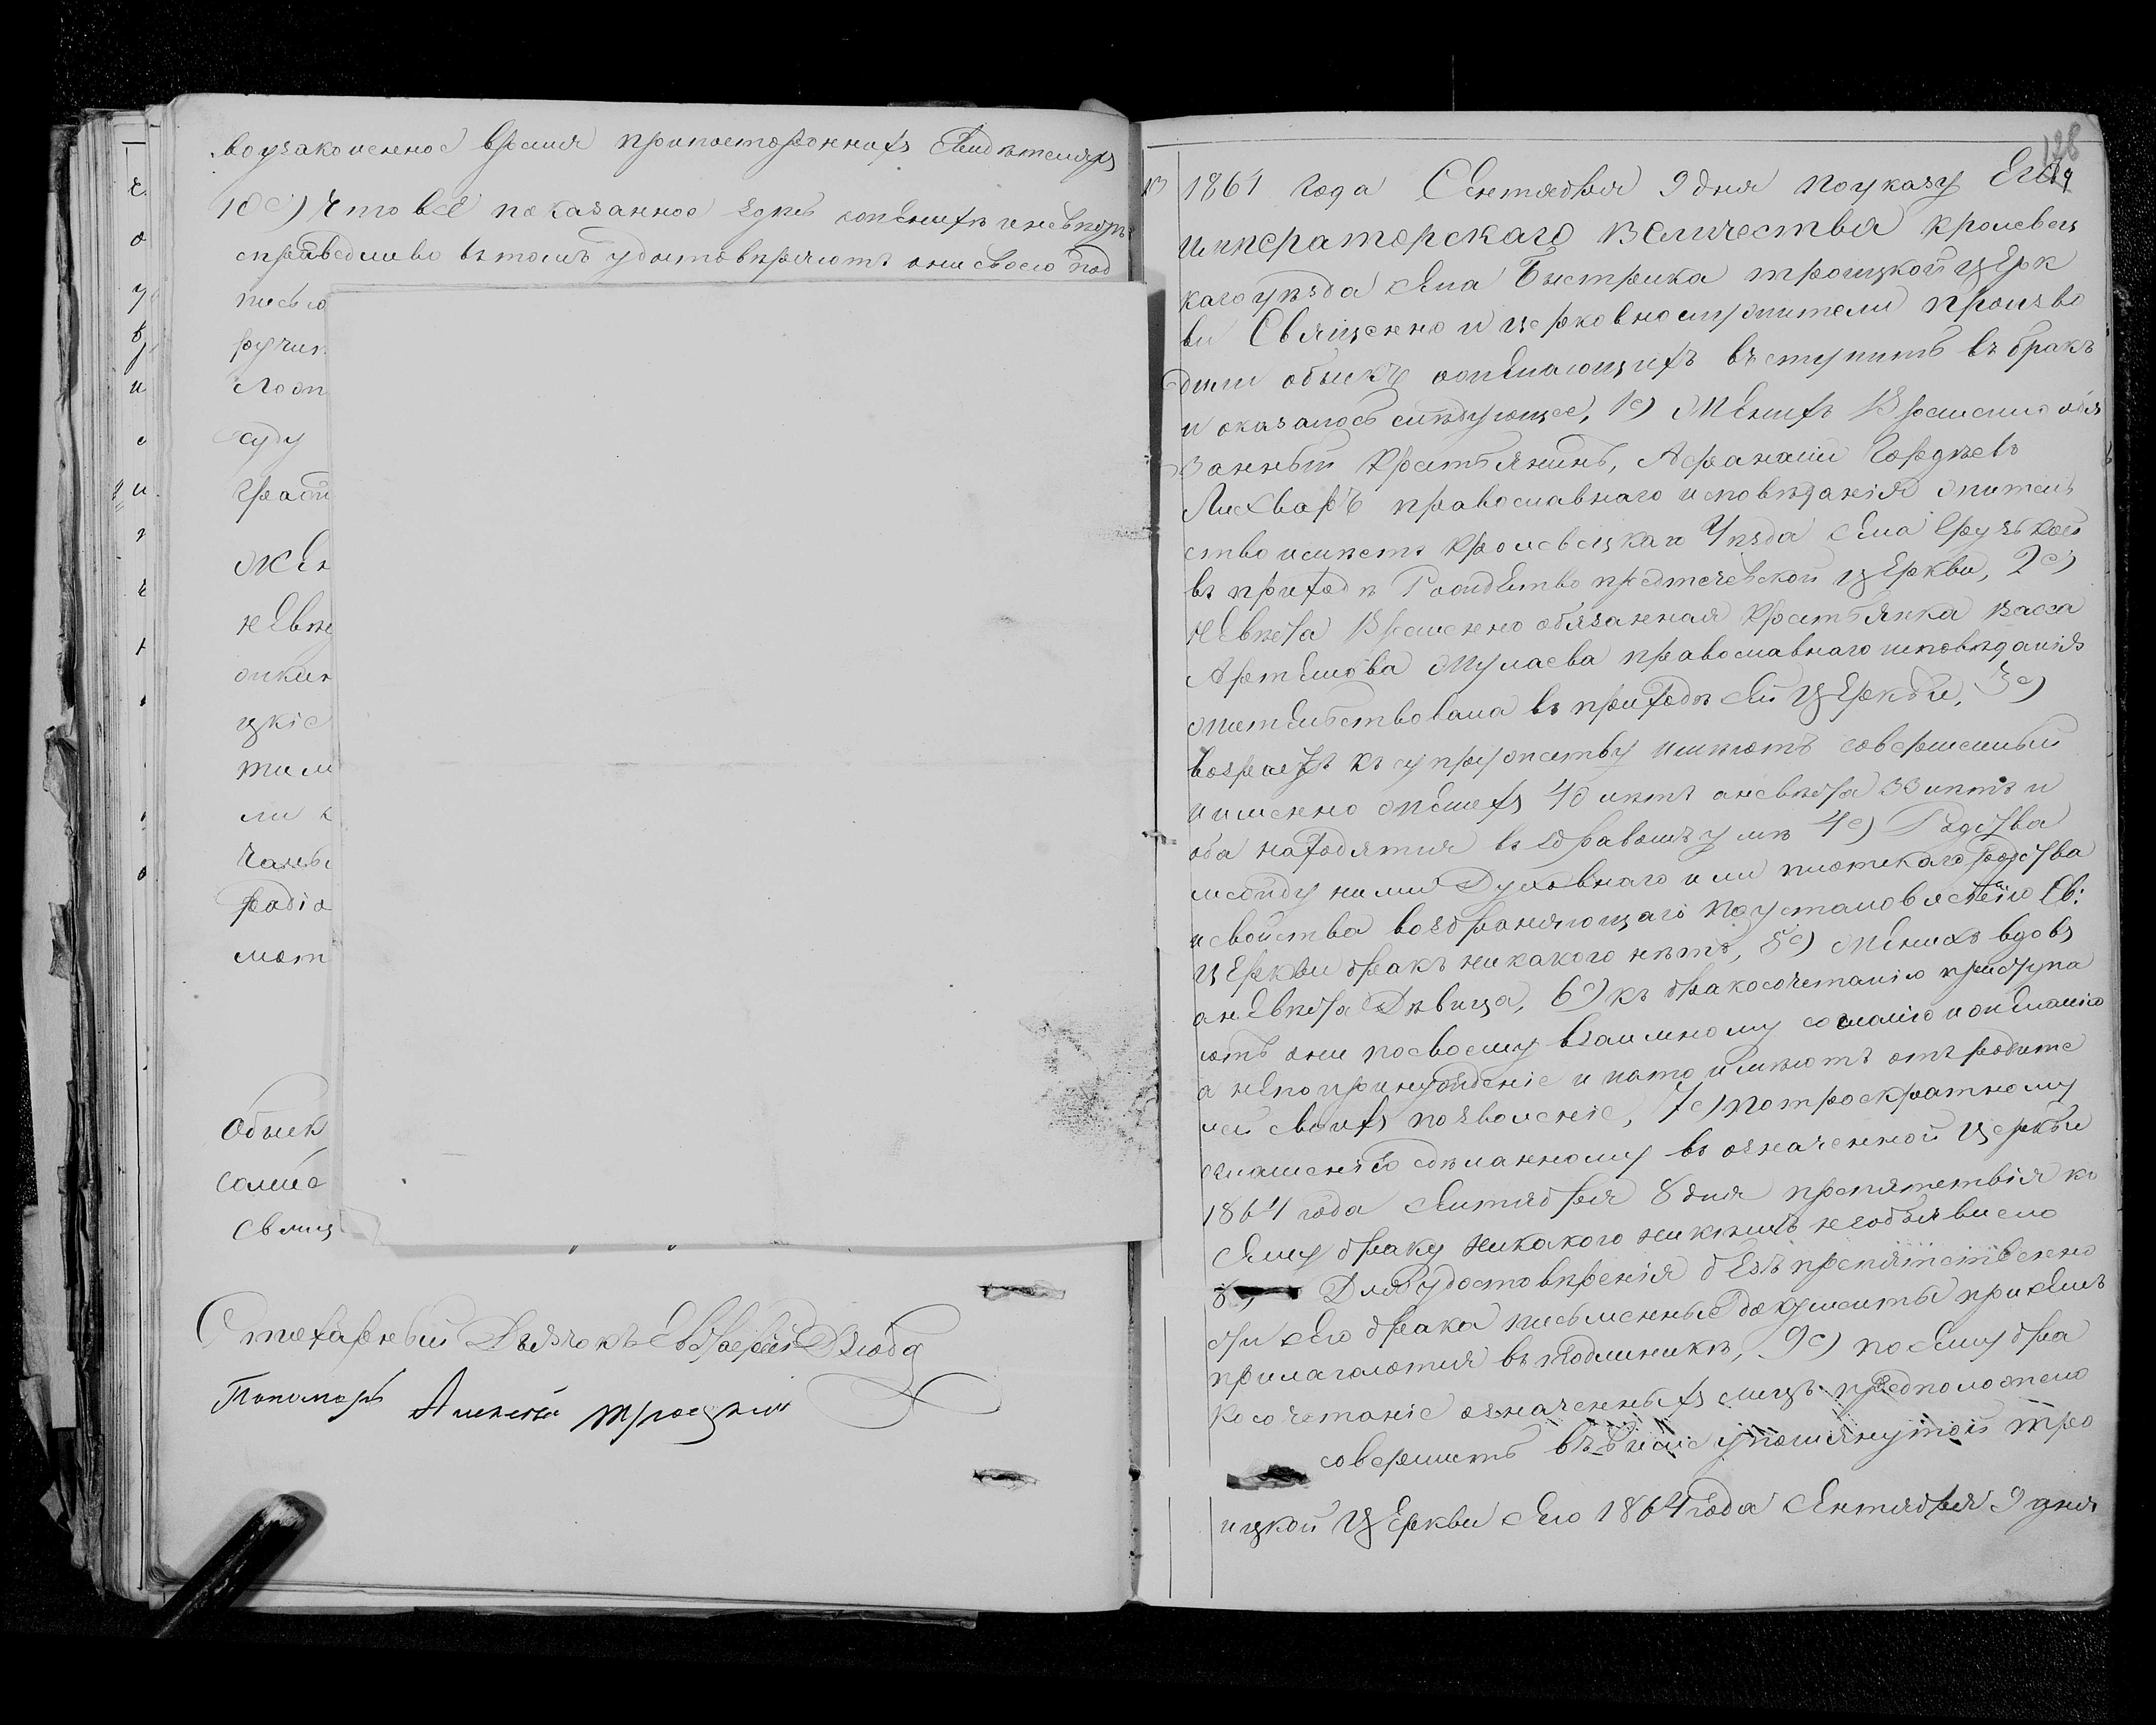 воузаконенное время припостороннихъ свидѣтеляхъ
10е) Что всё показанное здѣсь о женихѣ и невѣстѣ
справедливо въ томъ удостовѣряютъ они своею под
писью
ручит
суду
жен
невѣс
цкіе
тим
ли к
чаны
радіо
мот
Обыск
Свящ
Стихарный Дьячокъ Дзюба
Пономарь Алексѣй Троцкій
128
13 1864 года Сентября 9 дня по указу Его
императорскаго величества кролевец
каго уѣзда села Быстрика троицкой церк
ви Священно и церковнослужители произво
дили обыскъ о желающихъ въступить въ бракъ
и оказалось слѣдующее, 1е) Женихъ Временно обя
занный крестьянинъ, Афанасій Гордѣевъ
Лихваръ православнаго исповѣданія житель
ство имѣетъ кролевецкаго Уѣзда села Грузской
въ приходѣ Рождество предтечевской церкви, 2е)
невѣста Временно обязанная крестьянка васса
Артемова Мулаева православнаго исповѣданія
жительствовала въ приходѣ сей церкви, 3е)
возрастъ къ супружеству имѣютъ совершенный
и именно женихъ 40 лѣтъ а невѣста 30 лѣтъ и
оба находятся въ здравомъ умѣ 4е) Родства
между ними Духовнаго или плотскаго родства
и свойства возбраняющаго по установленію Св:
церкви бракъ никакого нѣтъ, 5е) женихъ вдовъ
а невѣста Дѣвица, 6е) къ бракосочетанію приступа
ютъ они по своему взаимному согласію и желанію
а не по принужденіе и нато имѣютъ отъ родите
лей своихъ позволеніе, 7е) по троекратному
оглашенію сдѣланному въ означенной церкви
1864 года Сентября 8 дня препятствія къ
сему браку никакого никѣмъ необъявлено
8е) Для удостовѣренія безъ препятственно
сти сего брака письменные документы при семъ
прилагаются въ подлинникѣ, 9е) по сему бра
косочетаніе означенныхъ лицъ предположено
совершить въ выше упомянутой тро
ицкой церкви сего 1864 года Сентября 9 дня